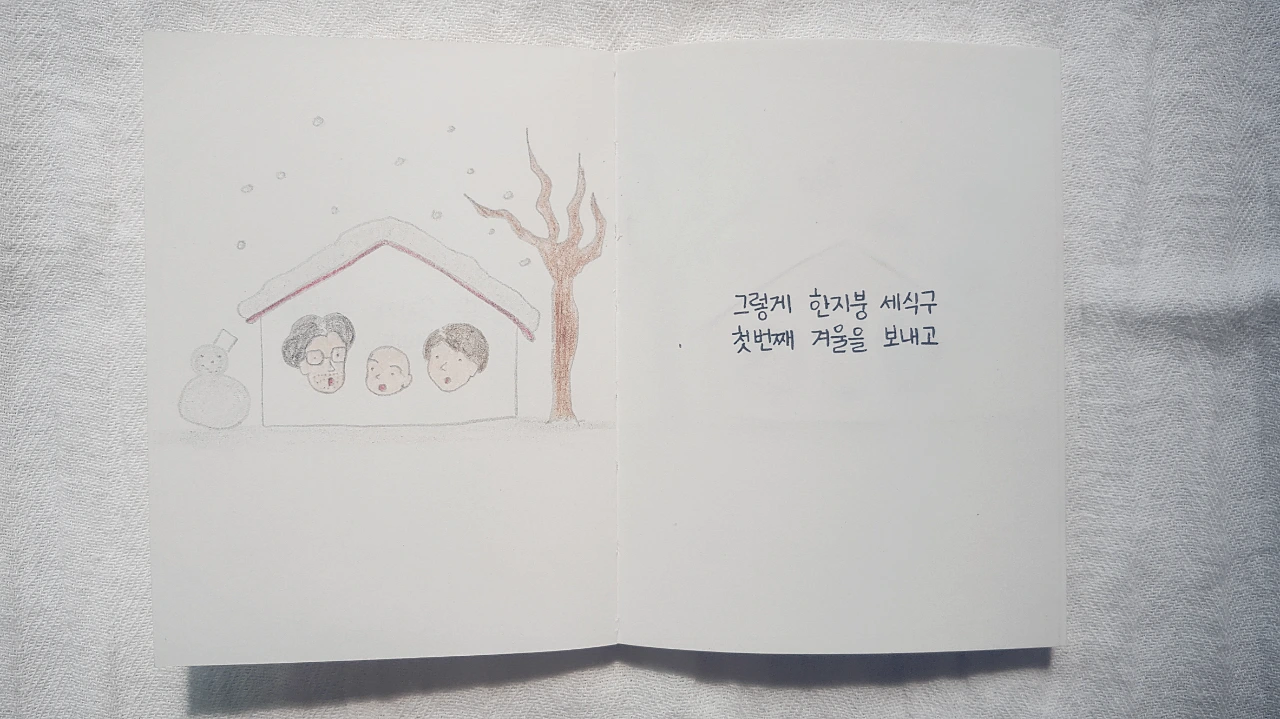 그렇게 한지붕 세식구
첫번째 겨울을 보내고